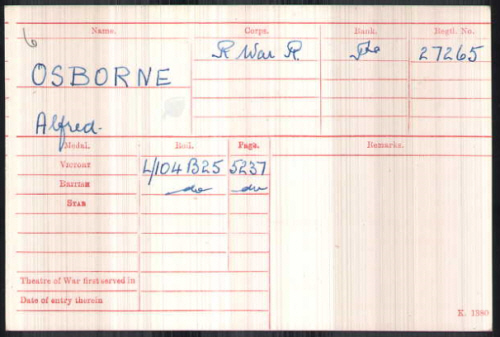 6
Name. Corps. Rank. Regtl. No.
OSBORNE R War R. Pte 27265
Alfred.
Medal. Roll. Page. Remarks.
VICTORY L/104B25 5237
BRITISH do do
STAR
Theatre of War first served in
Date of entry therein
K. 1380